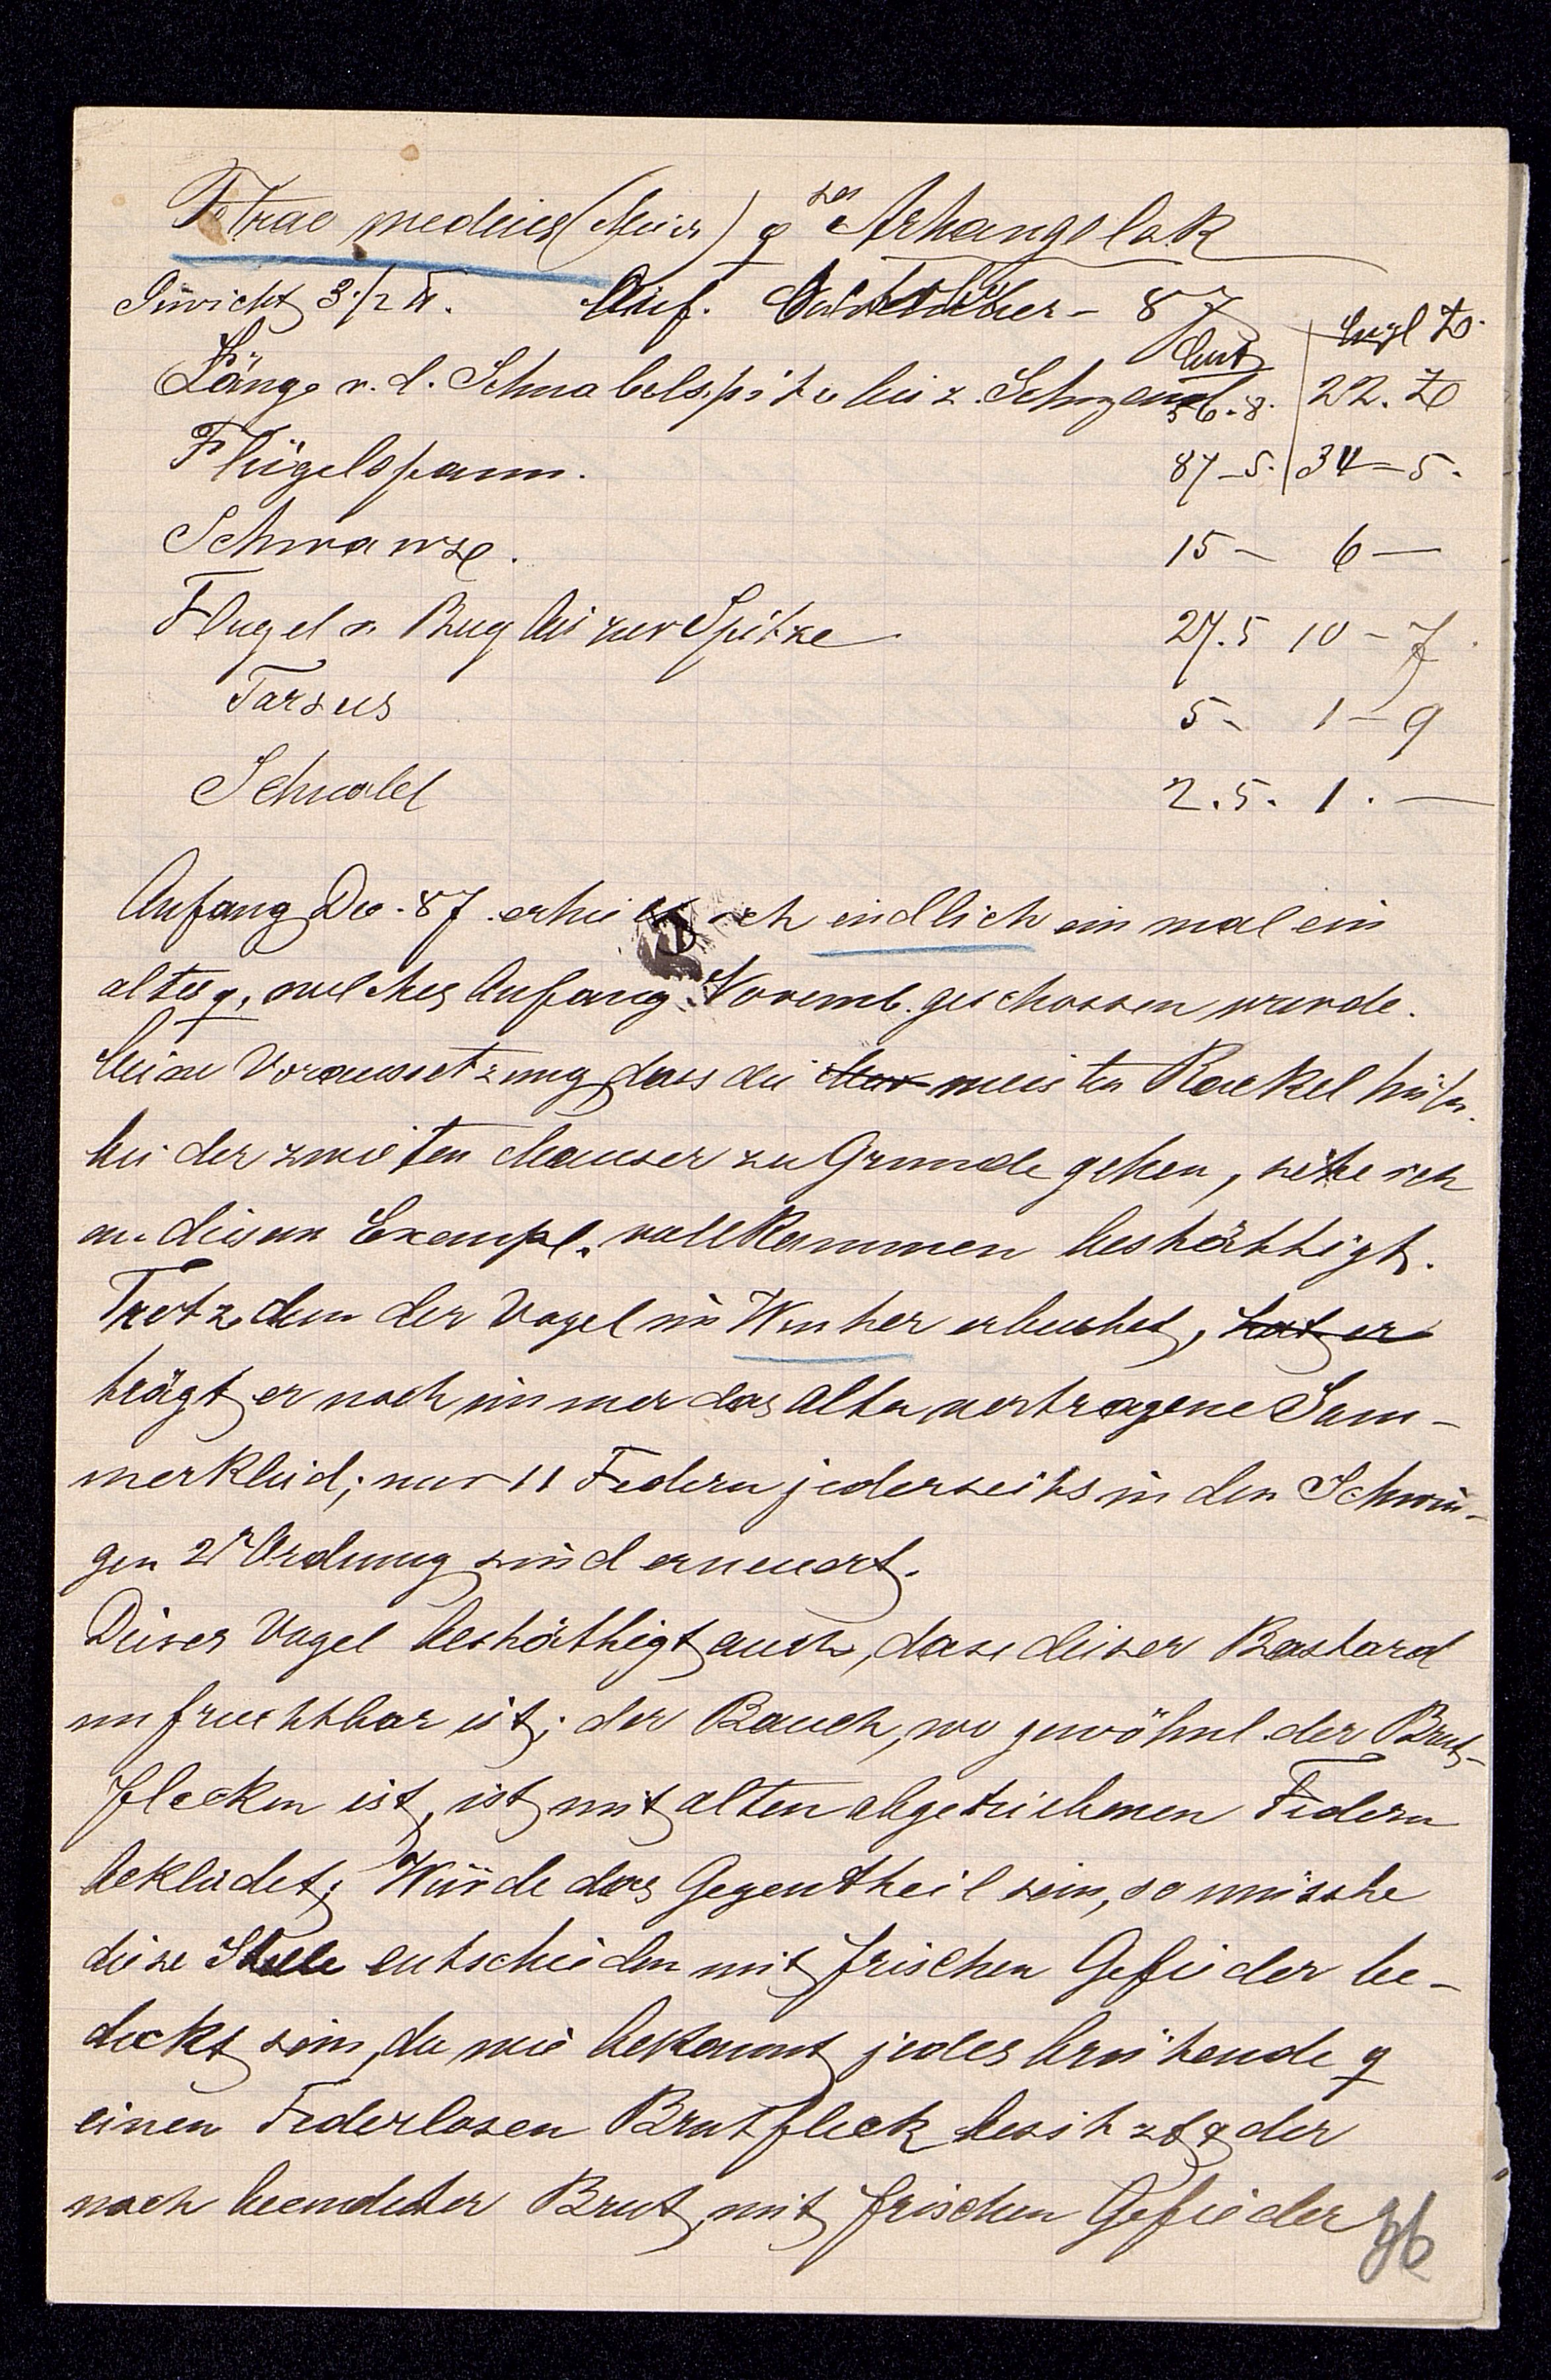 Tetrao medius (Meier) ♀ Arhangelsk
Gewicht 3 1/2 ℔. Anf. October - 87
Cent Engl Zo.
Länge v. d. Schnabelspitze bis z. Schwzend 56.8. 22. Zo
Flügelspann. 87-5. 34-5.
Schwanze. 15- 6-
Flugel v. Bug bis zur Spitze 27.5 10-7
Tarsus 5- 1-9
Schnabel 2.5. 1.-
Anfang Dec. 87. erhielt ich endlich ein mal ein
altes ♀, welches Anfang Novemb. geschossen wurde.
Meine Voraussetzung dass die meisten Rackelhühn.
bei der zweiten Mauser zu Grunde gehen, sehe ich
an diesem Exempl. vollkommen bestättigt.
Trotzdem der Vogel im Winter erbeutet, hat er
trägt er noch immer das alte vertragene Som-
merkleid; nur 11 Federn jederseits in den Schwin-
gen 2r Ordnung sind erneuert.
Dieser Vogel bestäthigt auch, dass dieser Bastard
unfruchtbar ist; der Bauch, wo gewöhnl. der Brut-
flecken ist, ist mit alten abgetriebenen Federn
bekleidet; Würde das Gegentheil sein, so müsste
diese Stelle entschieden mit frischen Gefieder be-
deckt sein, da wie bekannt jedes brütende ♀
einen Federlosen Brutfleck besitzt der
nach beendeter Brut, mit frischem Gefieder
36